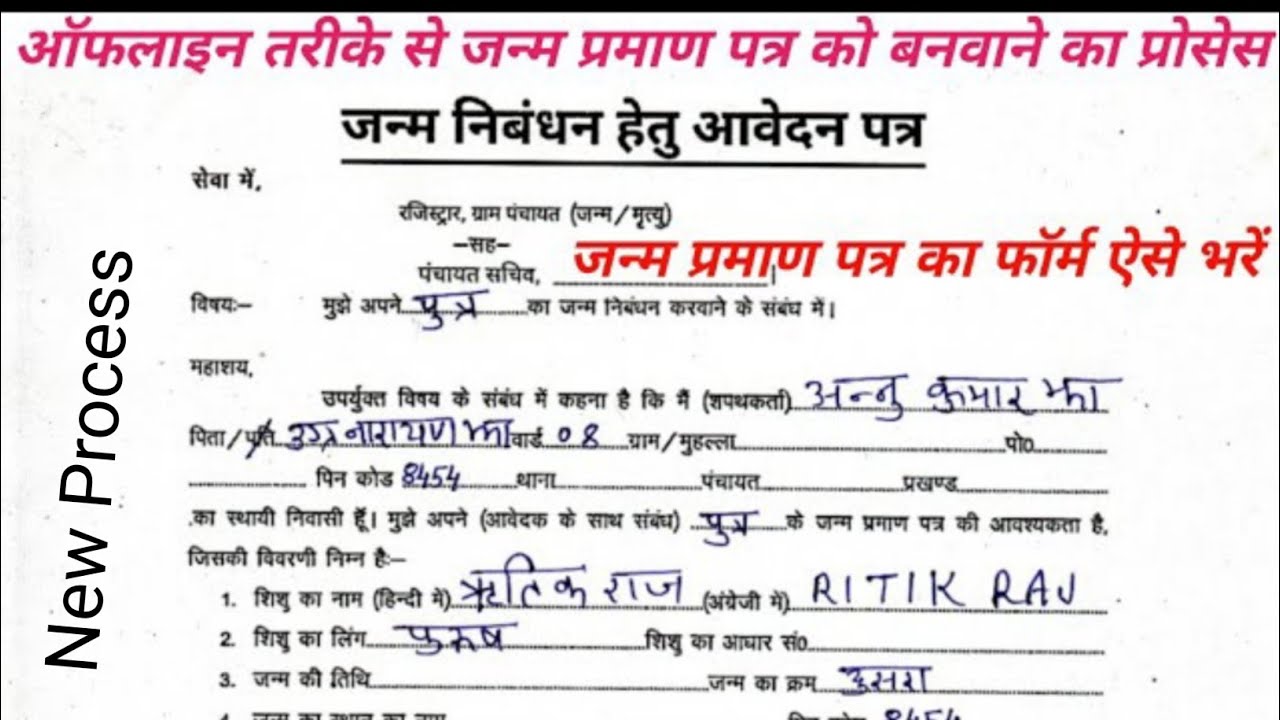 ऑफलाइन तरीके से जन्म प्रमाण पत्र को बनवाने का प्रोसेस
जन्म निबंधन हेतु आवेदन पत्र
सेवा में,
रजिस्ट्रार, ग्राम पंचायत (जन्म/मृत्यु)
–सह–
जन्म प्रमाण पत्र का फॉर्म ऐसे भरें
पंचायत सचिव, ....................।
विषयः– मुझे अपने पुत्र का जन्म निबंधन करवाने के संबंध में।
महाशय,
उपर्युक्त विषय के संबंध में कहना है कि मैं (शपथकर्ता) अन्नु कुमार झा
पिता/पति उग्र नारायण झा वार्ड 08 ग्राम/मुहल्ला.................... पो0....................
.................... पिन कोड 8454 थाना.................... पंचायत.................... प्रखण्ड....................
का स्थायी निवासी हूँ। मुझे अपने (आवेदक के साथ संबंध) पुत्र के जन्म प्रमाण पत्र की आवश्यकता है,
जिसकी विवरणी निम्न हैः–
1. शिशु का नाम (हिन्दी में) ऋतिक राज (अंग्रेजी में) RITIK RAJ
2. शिशु का लिंग पुरुष शिशु का आधार सं0....................
3. जन्म की तिथि.................... जन्म का क्रम दुसरा
4. जन्म का स्थान का नाम.................... पिन कोड 8454
New Process